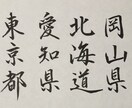 岡山県
北海道
愛知県
東京都